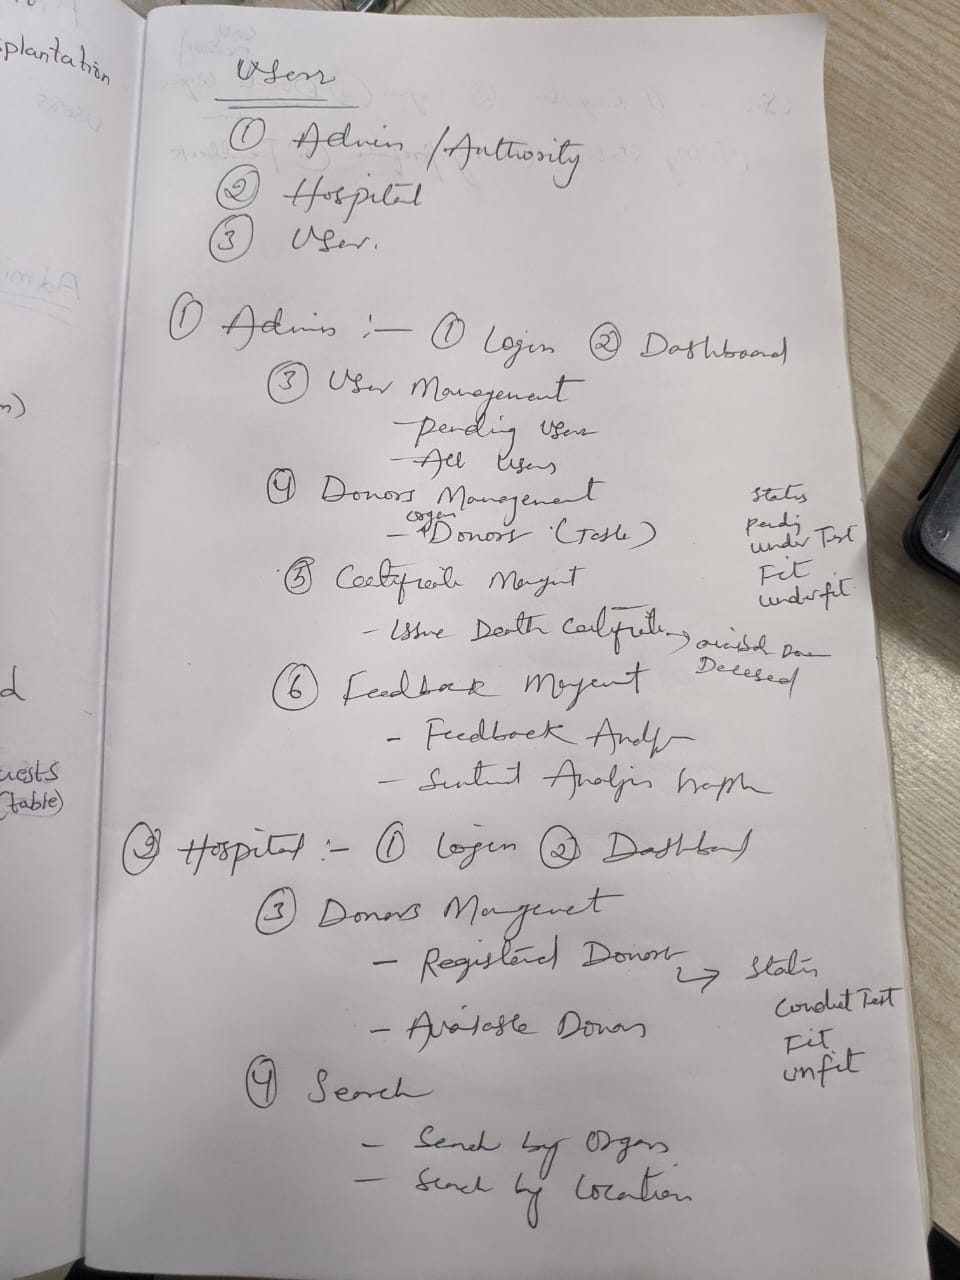 splantation
Users
① Admin / Authority
② Hospital
③ User.
① Admin :— ① Login ② Dashboard
③ User Management
- Pending Users
- All Users
④ Donors Management
organ
- Donors (Table)
Status
under Test
Fit
underfit
⑤ Certificate
- Issue Death Certificate →
Deceased
⑥ Feedback
- Feedback
- Analysis Graph
② Hospital :- ① Login ② Dashboard
③ Donors Management
- Registered Donors → Status
Conduct Test
Fit
unfit
- Available Donors
④ Search
- Search by Organs
- Search by Location
uests
(table)
d